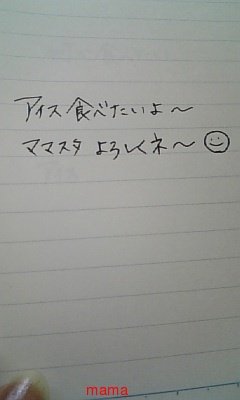 アイス食べたいよ〜
ママスタ よろしくネ〜
mama